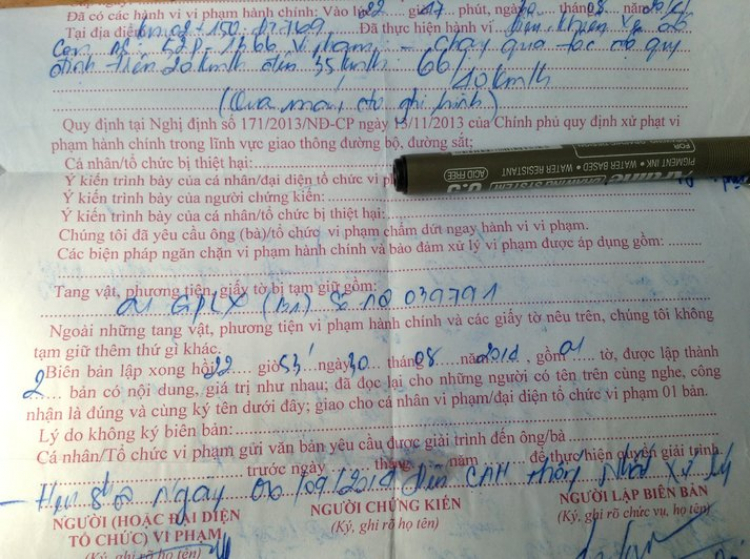 Đã có các hành vi vi phạm hành chính: Vào lúc 22 giờ 17 phút, ngày 30 tháng 08 năm
Tại địa điểm: Km Đã thực hiện hành vi điều khiển xe ô tô
vi phạm: - Chạy quá tốc độ quy
định trên 20km/h đến 35km/h: 66/
40km/h
(Qua máy, có ghi hình)
Quy định tại Nghị định số 171/2013/NĐ-CP ngày 13/11/2013 của Chính phủ quy định xử phạt vi
phạm hành chính trong lĩnh vực giao thông đường bộ, đường sắt;
Cá nhân/tổ chức bị thiệt hại:
Ý kiến trình bày của cá nhân/đại diện tổ chức vi
Ý kiến trình bày của người chứng kiến:
Ý kiến trình bày của cá nhân/tổ chức bị thiệt hại:
PIGMENT INK • WATER BASED • WATER RESISTANT
ACID FREE
0.5
Chúng tôi đã yêu cầu ông (bà)/tổ chức vi phạm chấm dứt ngay hành vi vi phạm.
Các biện pháp ngăn chặn vi phạm hành chính và bảo đảm xử lý vi phạm được áp dụng gồm:
Tang vật, phương tiện, giấy tờ bị tạm giữ gồm:
01 GPLX (B1) Số 039791
Ngoài những tang vật, phương tiện vi phạm hành chính và các giấy tờ nêu trên, chúng tôi không
tạm giữ thêm thứ gì khác.
Biên bản lập xong hồi 22 giờ 53' ngày 30 tháng 08 năm , gồm 01 tờ, được lập thành
2 bản có nội dung, giá trị như nhau; đã đọc lại cho những người có tên trên cùng nghe, công
nhận là đúng và cùng ký tên dưới đây; giao cho cá nhân vi phạm/đại diện tổ chức vi phạm 01 bản.
Lý do không ký biên bản:
Cá nhân/Tổ chức vi phạm gửi văn bản yêu cầu được giải trình đến ông/bà
trước ngày tháng năm để thực hiện quyền giải trình
- Hẹn ngày đến CAH Thống Nhất xử lý
NGƯỜI (HOẶC ĐẠI DIỆN
TỔ CHỨC) VI PHẠM
(Ký, ghi rõ họ tên)
NGƯỜI CHỨNG KIẾN
(Ký, ghi rõ họ tên)
NGƯỜI LẬP BIÊN BẢN
(Ký, ghi rõ chức vụ, họ tên)